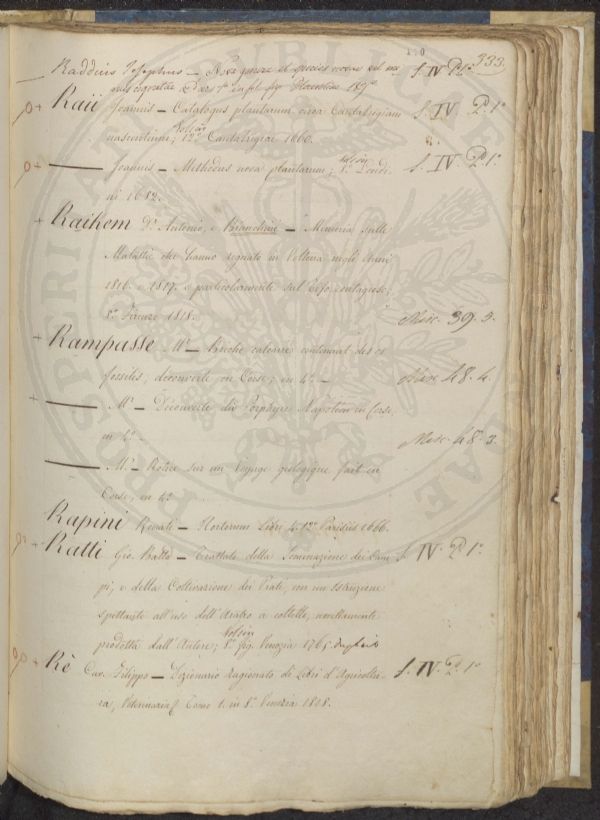 110
333.
Raddius Josephus — Nova genera et species novae vel S. IV P. 1°
Florentiae
Raii Joannis — Catalogus plantarum circa Cantabrigiam S. IV P. 1°
nascentium; Vol: in 12° Cantabrigiae 1660.
— Joannis — Methodus nova plantarum; Vol: in 8° Londi- S. IV. P. 1°
ni 1682.
Raikem Dr. Antonio, e Bianchini — Memoria sulle
Malattie che hanno regnato in Volterra negli Anni
1816. e 1817. e particolarmente sul Tifo contagioso;
8° Firenze 1818. Misc. 39. 5.
Rampasse Mr. — Brèche calcaire contenant des os
fossiles, découverte en Corse; in 4° — Misc. 48. 4.
— Mr. — Découverte du Porphyre Napoléon en Corse;
in 4° Misc. 48. 3.
— Mr. — Notice sur un Voyage géologique fait en
Corse; in 4°
Rapini Renati — Hortorum Libri 4. 12° Parisiis 1666.
Ratti Gio. Batta — Trattato della Seminazione dei Cam- S. IV P. 1°
pi, e della Coltivazione dei Prati, con un Istruzione
spettante all'uso dell'Aratro a coltello, novellamente
prodotta dall'Autore; Vol: in 8° fig. Venezia 1765.
Rè Cav. Filippo — Dizionario ragionato di Libri d'Agricoltu- S. IV. P. 1°
ra, Veterinaria Tomo 1. in 8° Venezia 1808.